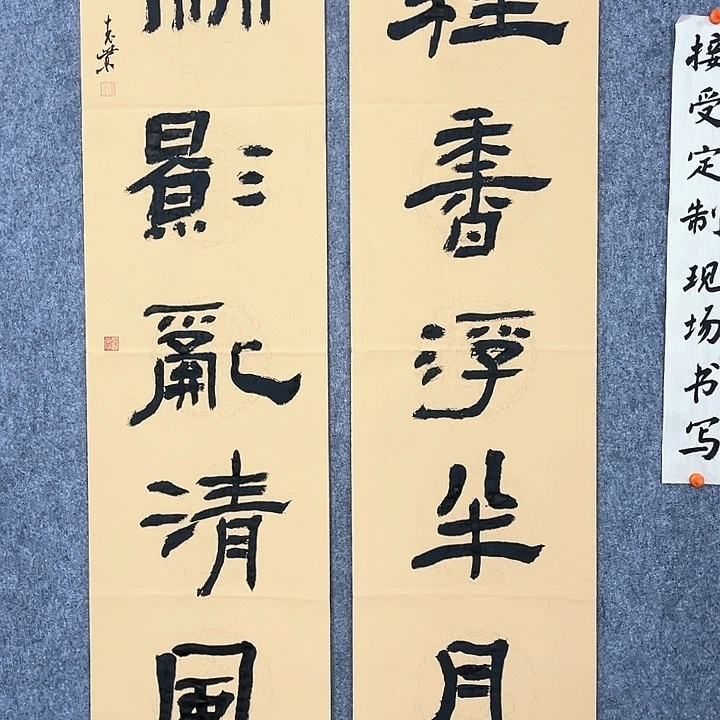 接受定制现场书写
桂香浮半月
影亂清風